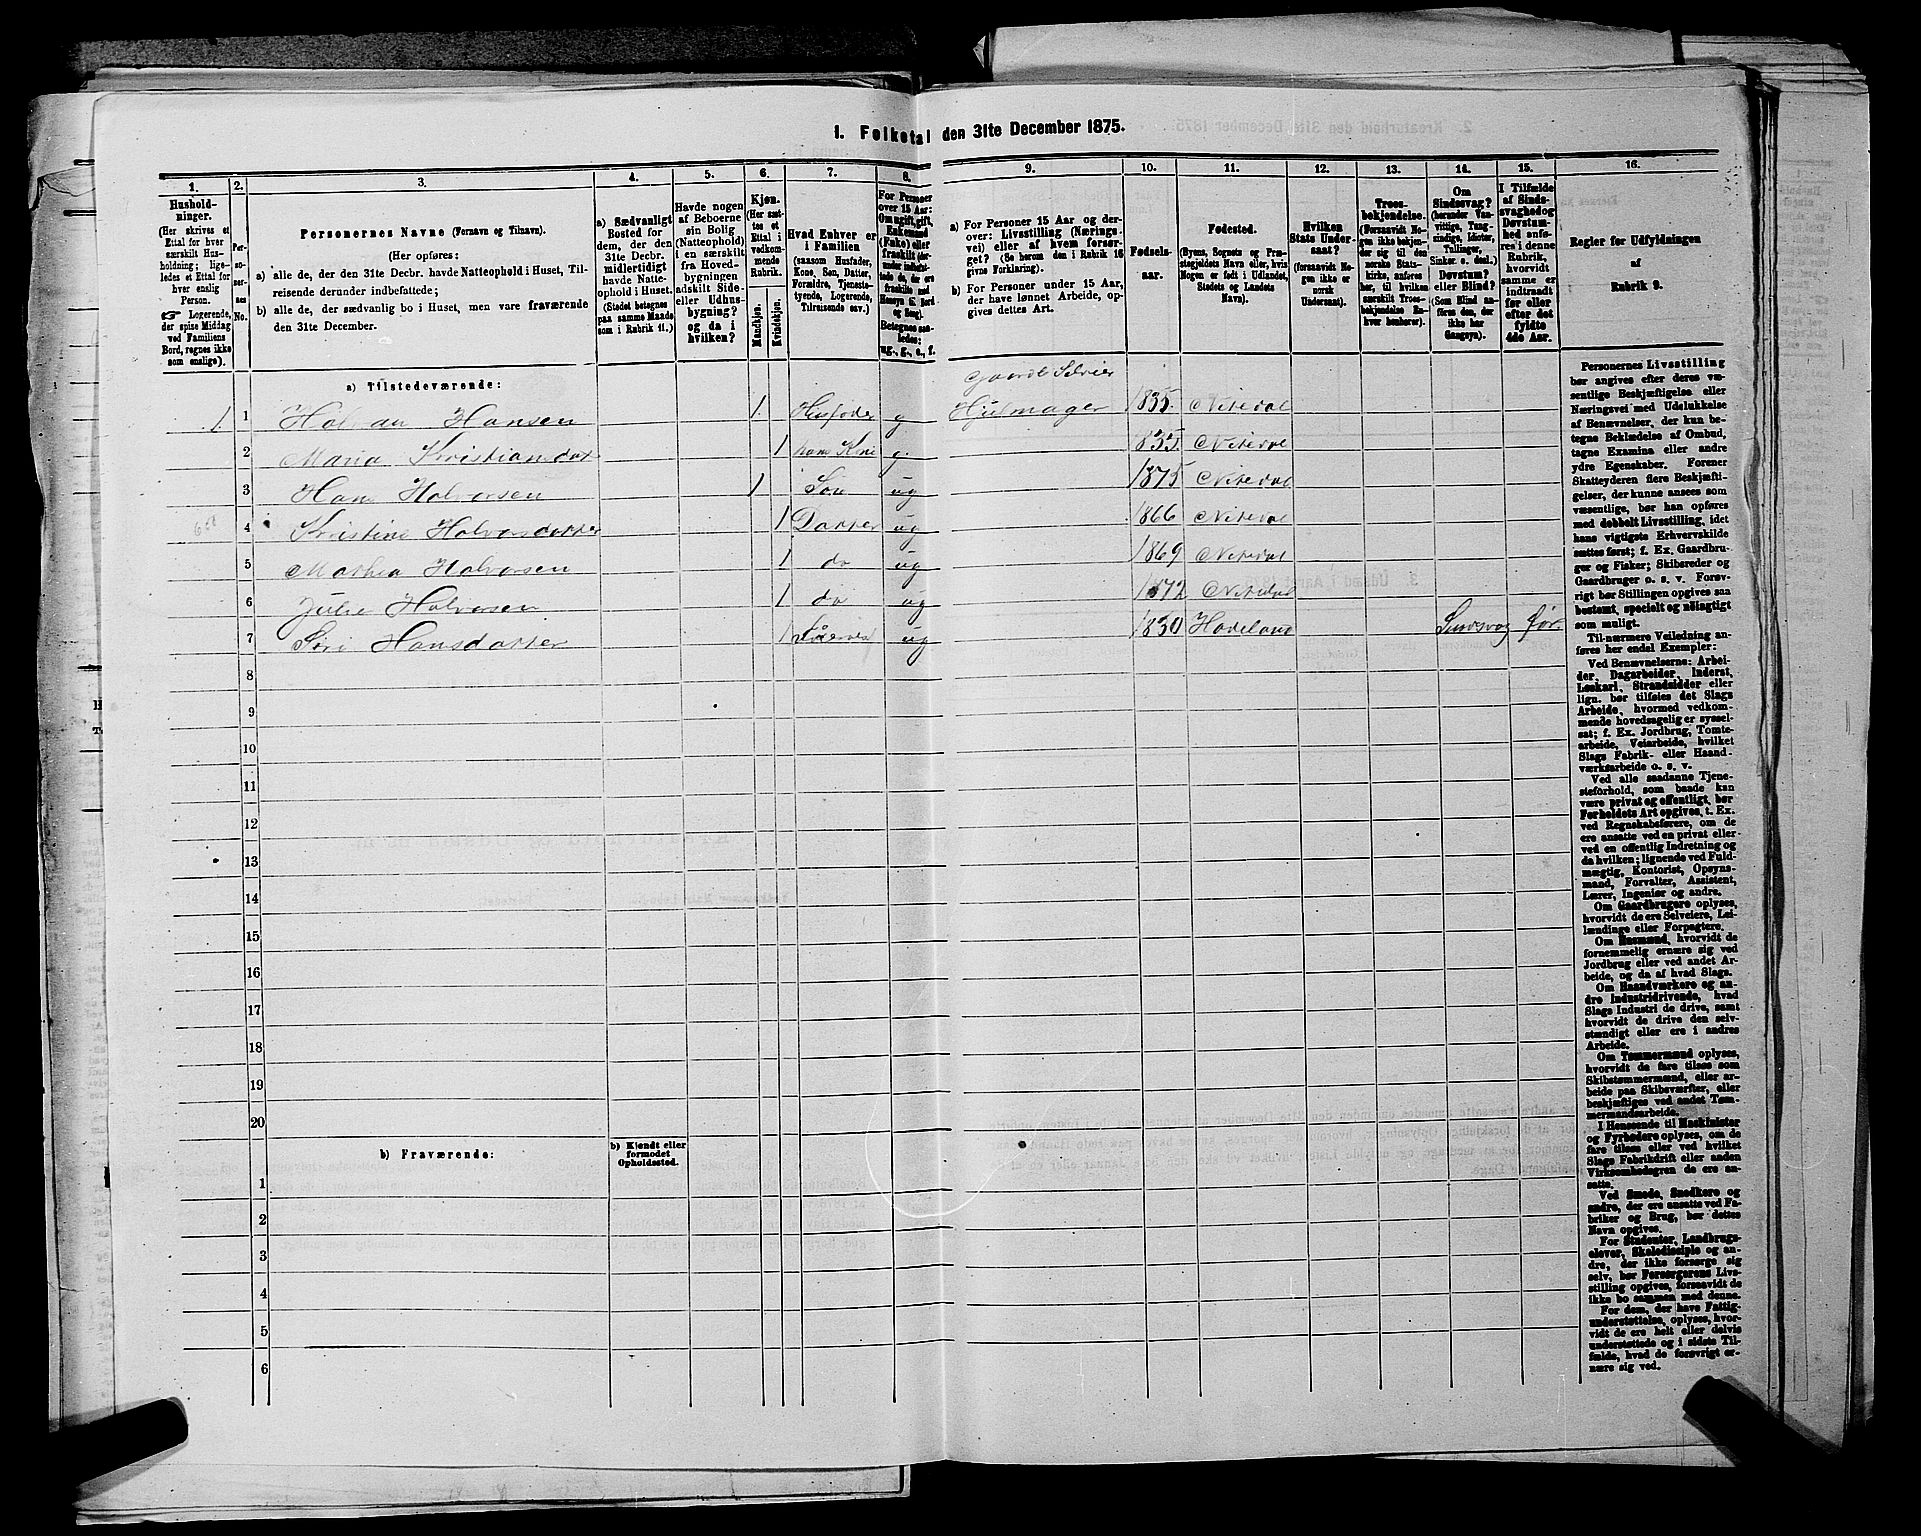 1. Folketal den 31te December 1875.
1. 2. 3. 4. 5. 6. 7. 8. 9. 10. 11. 12. 13. 14. 15. 16.
Hushold-
ninger.
(Her skrives et
Ettal for hver
særskilt Hus-
holdning; lige-
ledes et Ettal for
hver enslig
Person.
☞ Logerende,
der spise Middag
ved Familiens
Bord, regnes ikke
som enslige).
Per-
so-
ner-
nes
No.
Personernes Navne (Fornavn og Tilnavn).
(Her opføres:
a) alle de, der den 31te Decbr. havde Natteophold i Huset, Til-
reisende derunder indbefattede;
b) alle de, der sædvanlig bo i Huset, men vare fraværende
den 31te December.
a) Sædvanligt
Bosted for
dem, der den
31te Decbr.
midlertidigt
havde Natte-
ophold i Huset.
(Stedet betegnes
paa samme Maade
som i Rubrik 11.)
Havde nogen
af Beboerne
sin Bolig
(Natteophold)
i en særskilt
fra Hoved-
bygningen
adskilt Side-
eller Udhus-
bygning?
og da i
hvilken?
Kjøn.
(Her sæt-
tes et
Ettal i
vedkom-
mende
Rubrik.
Mandkjøn.
Kvindekjøn.
Hvad Enhver er
i Familien
(saasom Husfader,
Kone, Søn, Datter,
Forældre, Tjeneste-
tyende, Logerende,
Tilreisende osv.)
For Personer
over 15 Aar:
Om ugift, gift,
Enkemand
(Enke) eller
fraskilt
Betegnes saa-
ledes:
ug., g., e., f.
a) For Personer 15 Aar og der-
over: Livsstilling (Nærings-
vei) eller af hvem forsør-
get? (Se herom den i Rubrik 16
givne Forklaring).
b) For Personer under 15 Aar,
der have lønnet Arbeide, op-
gives dettes Art.
Fødsels-
aar.
Fødested.
(Byens, Sognets og Præ-
stegjeldets Navn eller, hvis
Nogen er født i Udlandet,
Stedets og Landets
Navn).
Hvilken
Stats Under-
saat?
(forsaavidt No-
gen ikke er
norsk
Undersaat).
Troes-
bekjendelse.
(Forsaavidt No-
gen ikke bekjen-
der sig til den
norske Stats-
kirke, anføres
her, til hvilken
særskilt Troes-
bekjendelse En-
hver henhører).
Om
Sindssvag?
(herunder Van-
vittige, Tung-
sindige, Idioter,
Tullinger,
Sinker o. desl.)
Døvstum?
eller Blind?
(Som Blind an-
føres den, der
ikke har
Gangsyn).
I Tilfælde
af Sinds-
svaghed og
Døvstum-
hed anfø-
res i denne
Rubrik,
hvorvidt
samme er
indtraadt
før eller
efter det
fyldte
4de Aar.
Regler for Udfyldningen
af
Rubrik 9.
a) Tilstedeværende:
Gaardb Selveier
1 1 Halvan Hansen 1 Husfader g Hjulmager 1835 Nitedal
2 Maria Kristiansdat 1 hans Kone g 1835 Nitedal
3 Hans Halvorsen 1 Søn ug 1875 Nitedal
4 Kristine Halvorsdatter 1 Datter ug 1866 Nitedal
5 Mathea Halvorsen 1 do ug 1869 Nitedal
6 Julie Halvorsen 1 do ug 1872 Nitedal
7 Siri Hansdatter 1 ug 1830 Hadeland Sindsvag før
8
9
10
11
12
13
14
15
16
17
18
19
20
b) Fraværende:
b) Kjendt eller
formodet
Opholdssted.
1
2
3
4
5
6
Personernes Livsstilling
bør angives efter deres væ-
sentlige Beskjæftigelse eller
Næringsvei med Udelukkelse
af Benævnelser, der kun be-
tegne Beklædelse af Ombud,
tagne Examina eller andre
ydre Egenskaber. Forener
Skatteyderen flere Beskjæfti-
gelser, der kunne ansees som
væsentlige, bør han opføres
med dobbelt Livsstilling, idet
hans vigtigste Erhvervskilde
sættes først; f. Ex. Gaardbru-
ger og Fisker; Skibsreder og
Gaardbruger o. s. v. Forøv-
rigt bør Stillingen opgives saa
bestemt, specielt og nøiagtigt
som muligt.
Til nærmere Veiledning an-
føres her endel Exempler:
Ved Benævnelserne: Arbei-
der, Dagarbeider, Inderst,
Løskarl, Strandsidder eller
lign. bør tilføies det Slags
Arbeide, hvormed vedkom-
mende hovedsagelig er syssel-
sat; f. Ex. Jordbrug, Tomte-
arbeide, Veiarbeide, hvilket
Slags Fabrik- eller Haand-
værksarbeide o. s. v.
Ved alle saadanne Tjene-
steforhold, som baade kan
være privat og offentligt, bør
Forholdets Art opgives, t. Ex.
ved Regnskabsførere, om de
ere ansatte ved en privat eller
ved en offentlig Indretning og
da hvilken; lignende ved Fuld-
mægtig, Kontorist, Opsyns-
mand, Forvalter, Assistent,
Lærer, Ingeniør og andre.
Om Gaardbrugere oplyses,
hvorvidt de ere Selveiere, Lei-
lændinge eller Forpagtere.
Om Husmænd, hvorvidt de
fornemmelig ernære sig ved
Jordbrug eller ved andet Ar-
beide, og da af hvad Slags.
Om Haandværkere og an-
dre Industridrivende, hvad
Slags Industri de drive, samt
hvorvidt de drive den selv-
stændigt eller ere i andres
Arbeide.
Om Tømmermænd oplyses,
hvorvidt de fare tilsøs som
Skibstømmermænd, eller ar-
beide paa Skibsværfter, eller
beskjæftiges ved andet Tøm-
mermandsarbeide.
I Henseende til Maskinister
og Fyrbødere oplyses, om de
fare tilsøs eller ved hvilket
Slags Fabrikdrift eller anden
Virksomhedsgren de ere an-
satte.
Ved Smede, Snedkere og
andre, der ere ansatte ved Fa-
briker og Brug, bør dettes
Navn opgives.
For Studenter, Landbrugs-
elever, Skoledisciple og an-
dre, der ikke forsørge sig
selv, bør Forsørgerens Livs-
stilling opgives, forsaavidt de
ikke bo sammen med denne.
For dem, der have Fattig-
understøttelse, oplyses, hvor-
vidt de ere helt eller delvis
understøttede og i sidste Til-
fælde, hvad de forøvrigt er-
nære sig ved.